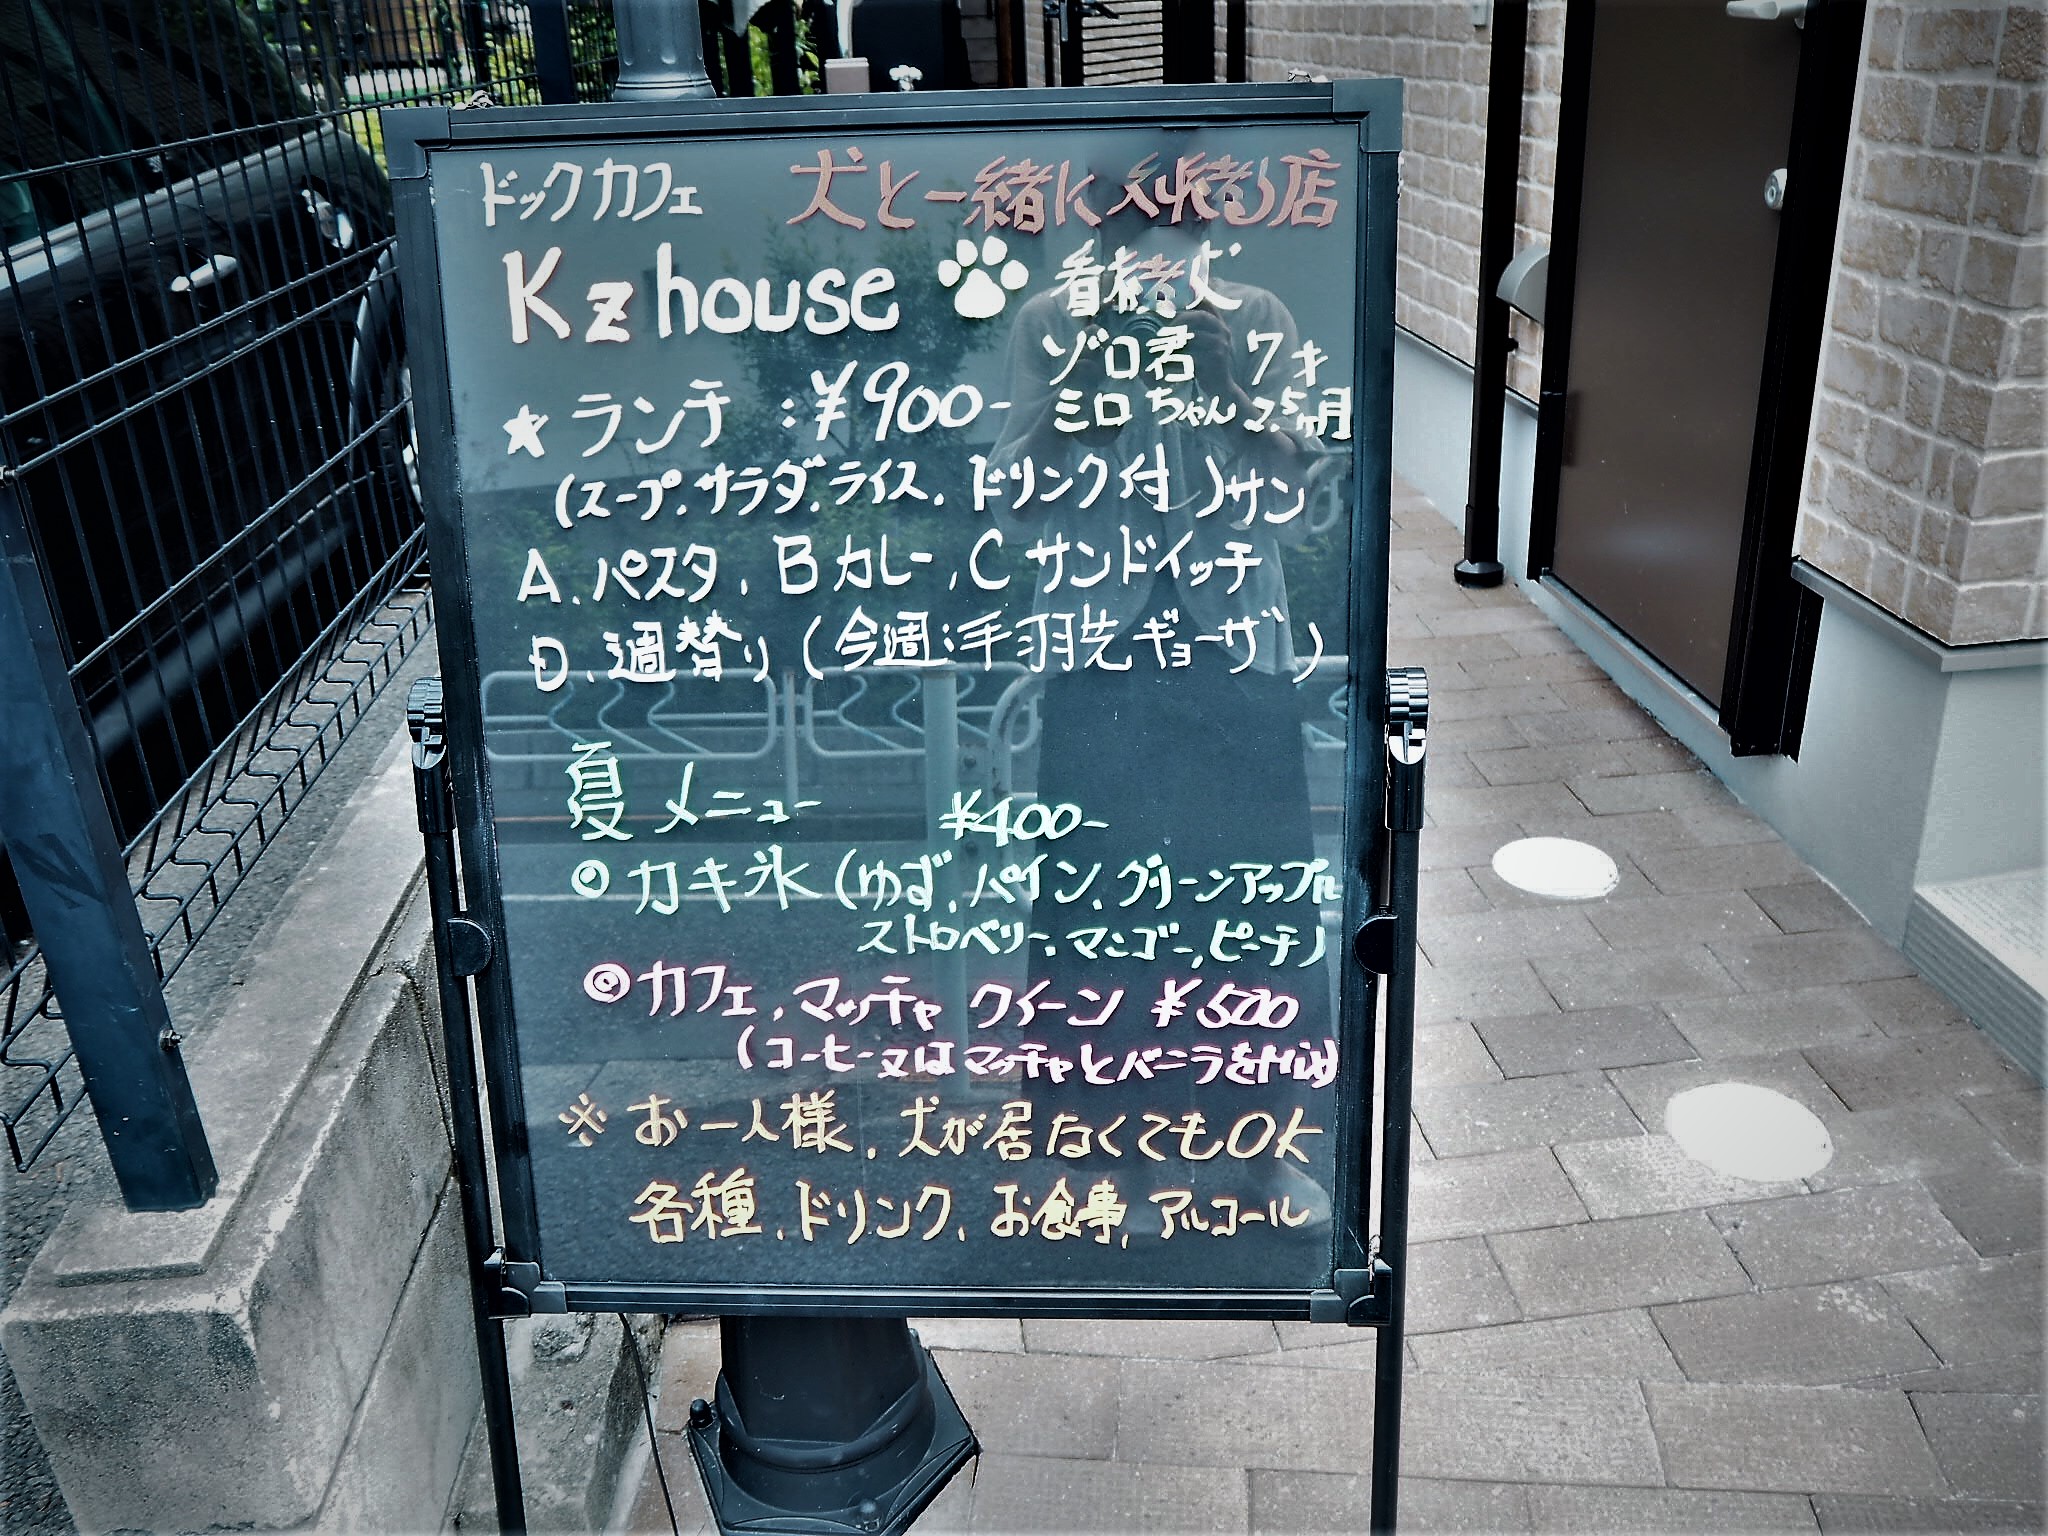 ドックカフェ 犬と一緒に入れる店
Kz house 看板犬
ゾロ君 7才
ミロちゃん 2.5ヶ月
★ランチ:¥900-
(スープ.サラダ.ライス.ドリンク付)サン
A.パスタ,Bカレー,Cサンドイッチ
D.週替り(今週:手羽先ギョーザ)
夏メニュー ¥400-
◎カキ氷(ゆず.パイン.グリーンアップル
ストロベリー.マンゴー,ピーチ)
◎カフェ,マッチャ クイーン ¥500
(コーヒー又はマッチャとバニラを
※お一人様.犬が居なくてもOK
各種.ドリンク,お食事,アルコール